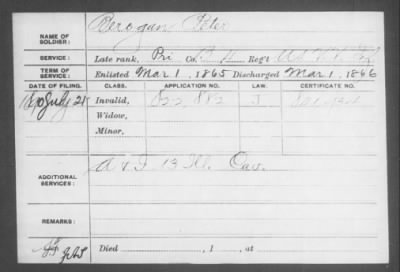 NAME OF SOLDIER: Berogan, Peter
SERVICE: Late rank, Pri Co. Reg't
TERM OF SERVICE: Enlisted Mar 1, 1865 Discharged Mar 1, 1866
DATE OF FILING. CLASS. APPLICATION NO. LAW. CERTIFICATE NO.
July 21 Invalid, 822,882 J
Widow,
Minor,
ADDITIONAL SERVICES: A & I 13 Ill. Cav.
REMARKS:
Died , 1 , at